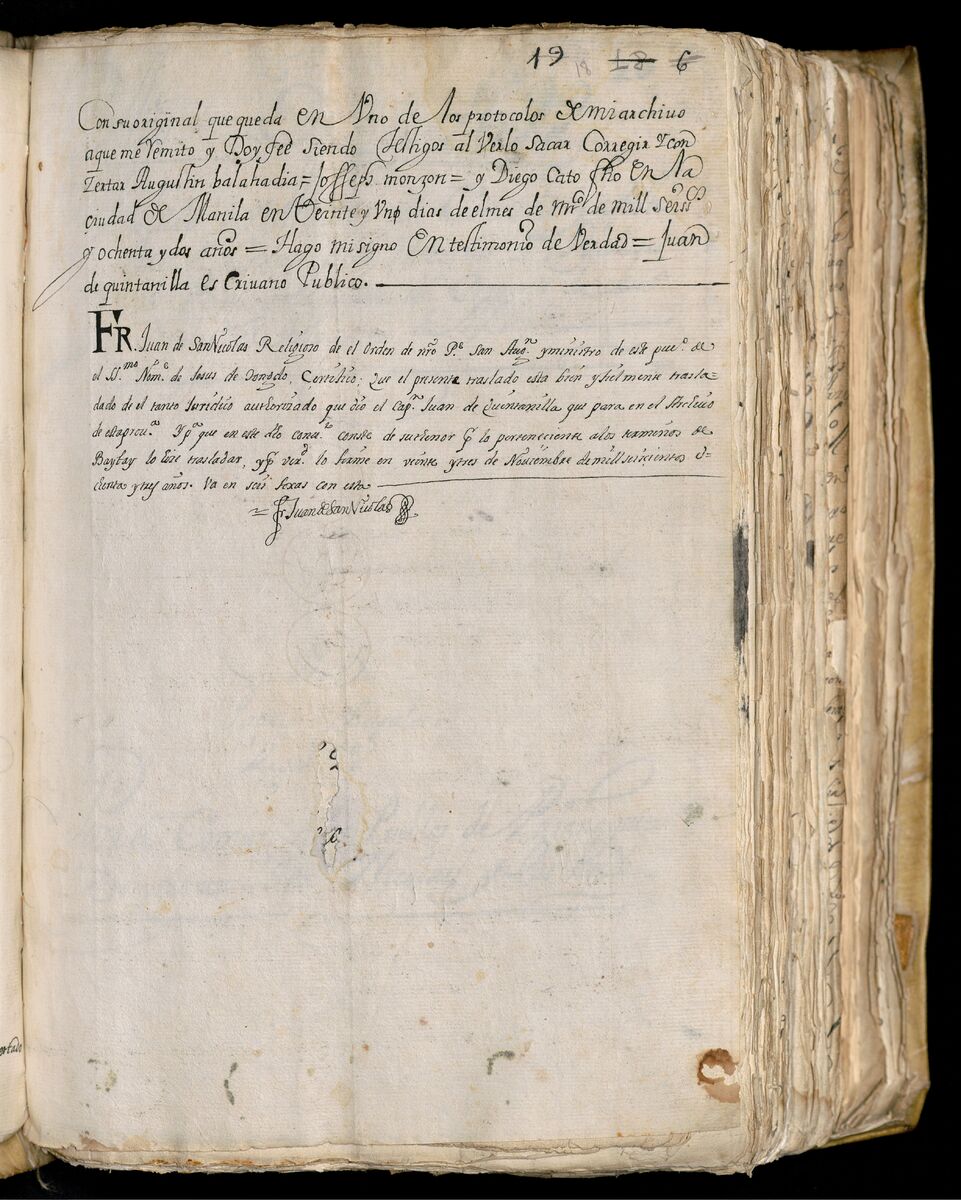 19 18 18 6
Con su original que queda en Vno de los protocolos de mi archivo
a que me remito y Doy fee siendo testigos al verlo sacar Corregir y con
zertar Augustin balahadia = Joseph monzon = y Diego Cato fho en la
ciudad de Manila en Veinte y Vno dias de el mes de mrço de mill seiss.os
y ochenta y dos años = Hago mi signo En testimonio de Verdad = Juan
de quintanilla es Crivano Publico.
FR. Juan de San Nicolas Religioso de el Orden de nro P.e San Aug.n y ministro de este pue.o de
el SS.mo Nom.e de Jesus de Certifico; Que el presente traslado esta bien y fielmente trasla-
dado de el tanto Juridico authorizado que dio el Cap.n Juan de Quintanilla que para en el Archivo
de esta prou.a Y p.a que en este dho conu.to conste de su thenor y lo perteneciente a los terminos de
Baybay lo hize trasladar, y p.a ver.d lo firme en veinte y tres de Noviembre de mill seiscientos o-
chenta y tres años. Va en seis foxas con esta
= Fr Juan de San Nicolas